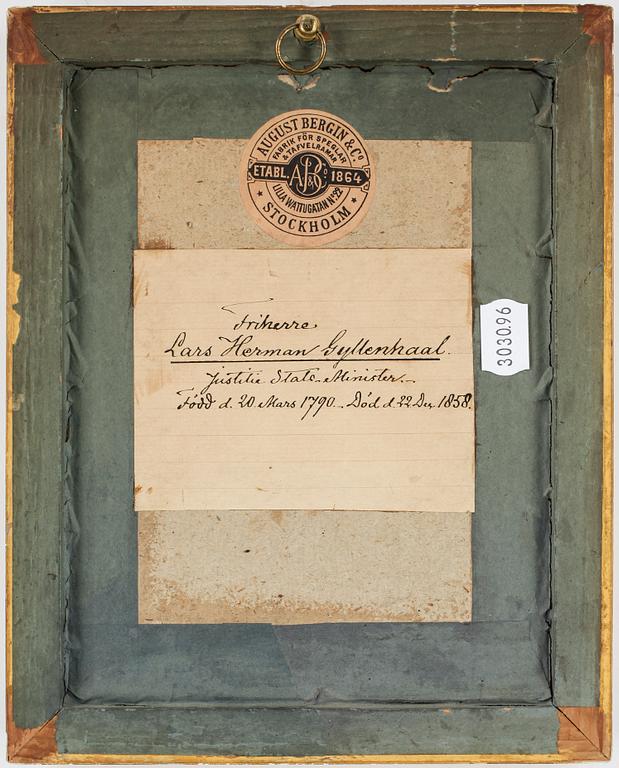 AUGUST BERGIN & Co.
FABRIK FÖR SPEGLAR
& TAFVELRAMAR
ETABL. AB&Co 1864
LILLA WATTUGATAN No 22
★ STOCKHOLM ★
Friherre
Lars Herman Gyllenhaal.
Justitie Stats-Minister.
Född d. 20 Mars 1790. Död d. 22 Dec. 1858.
3030.96